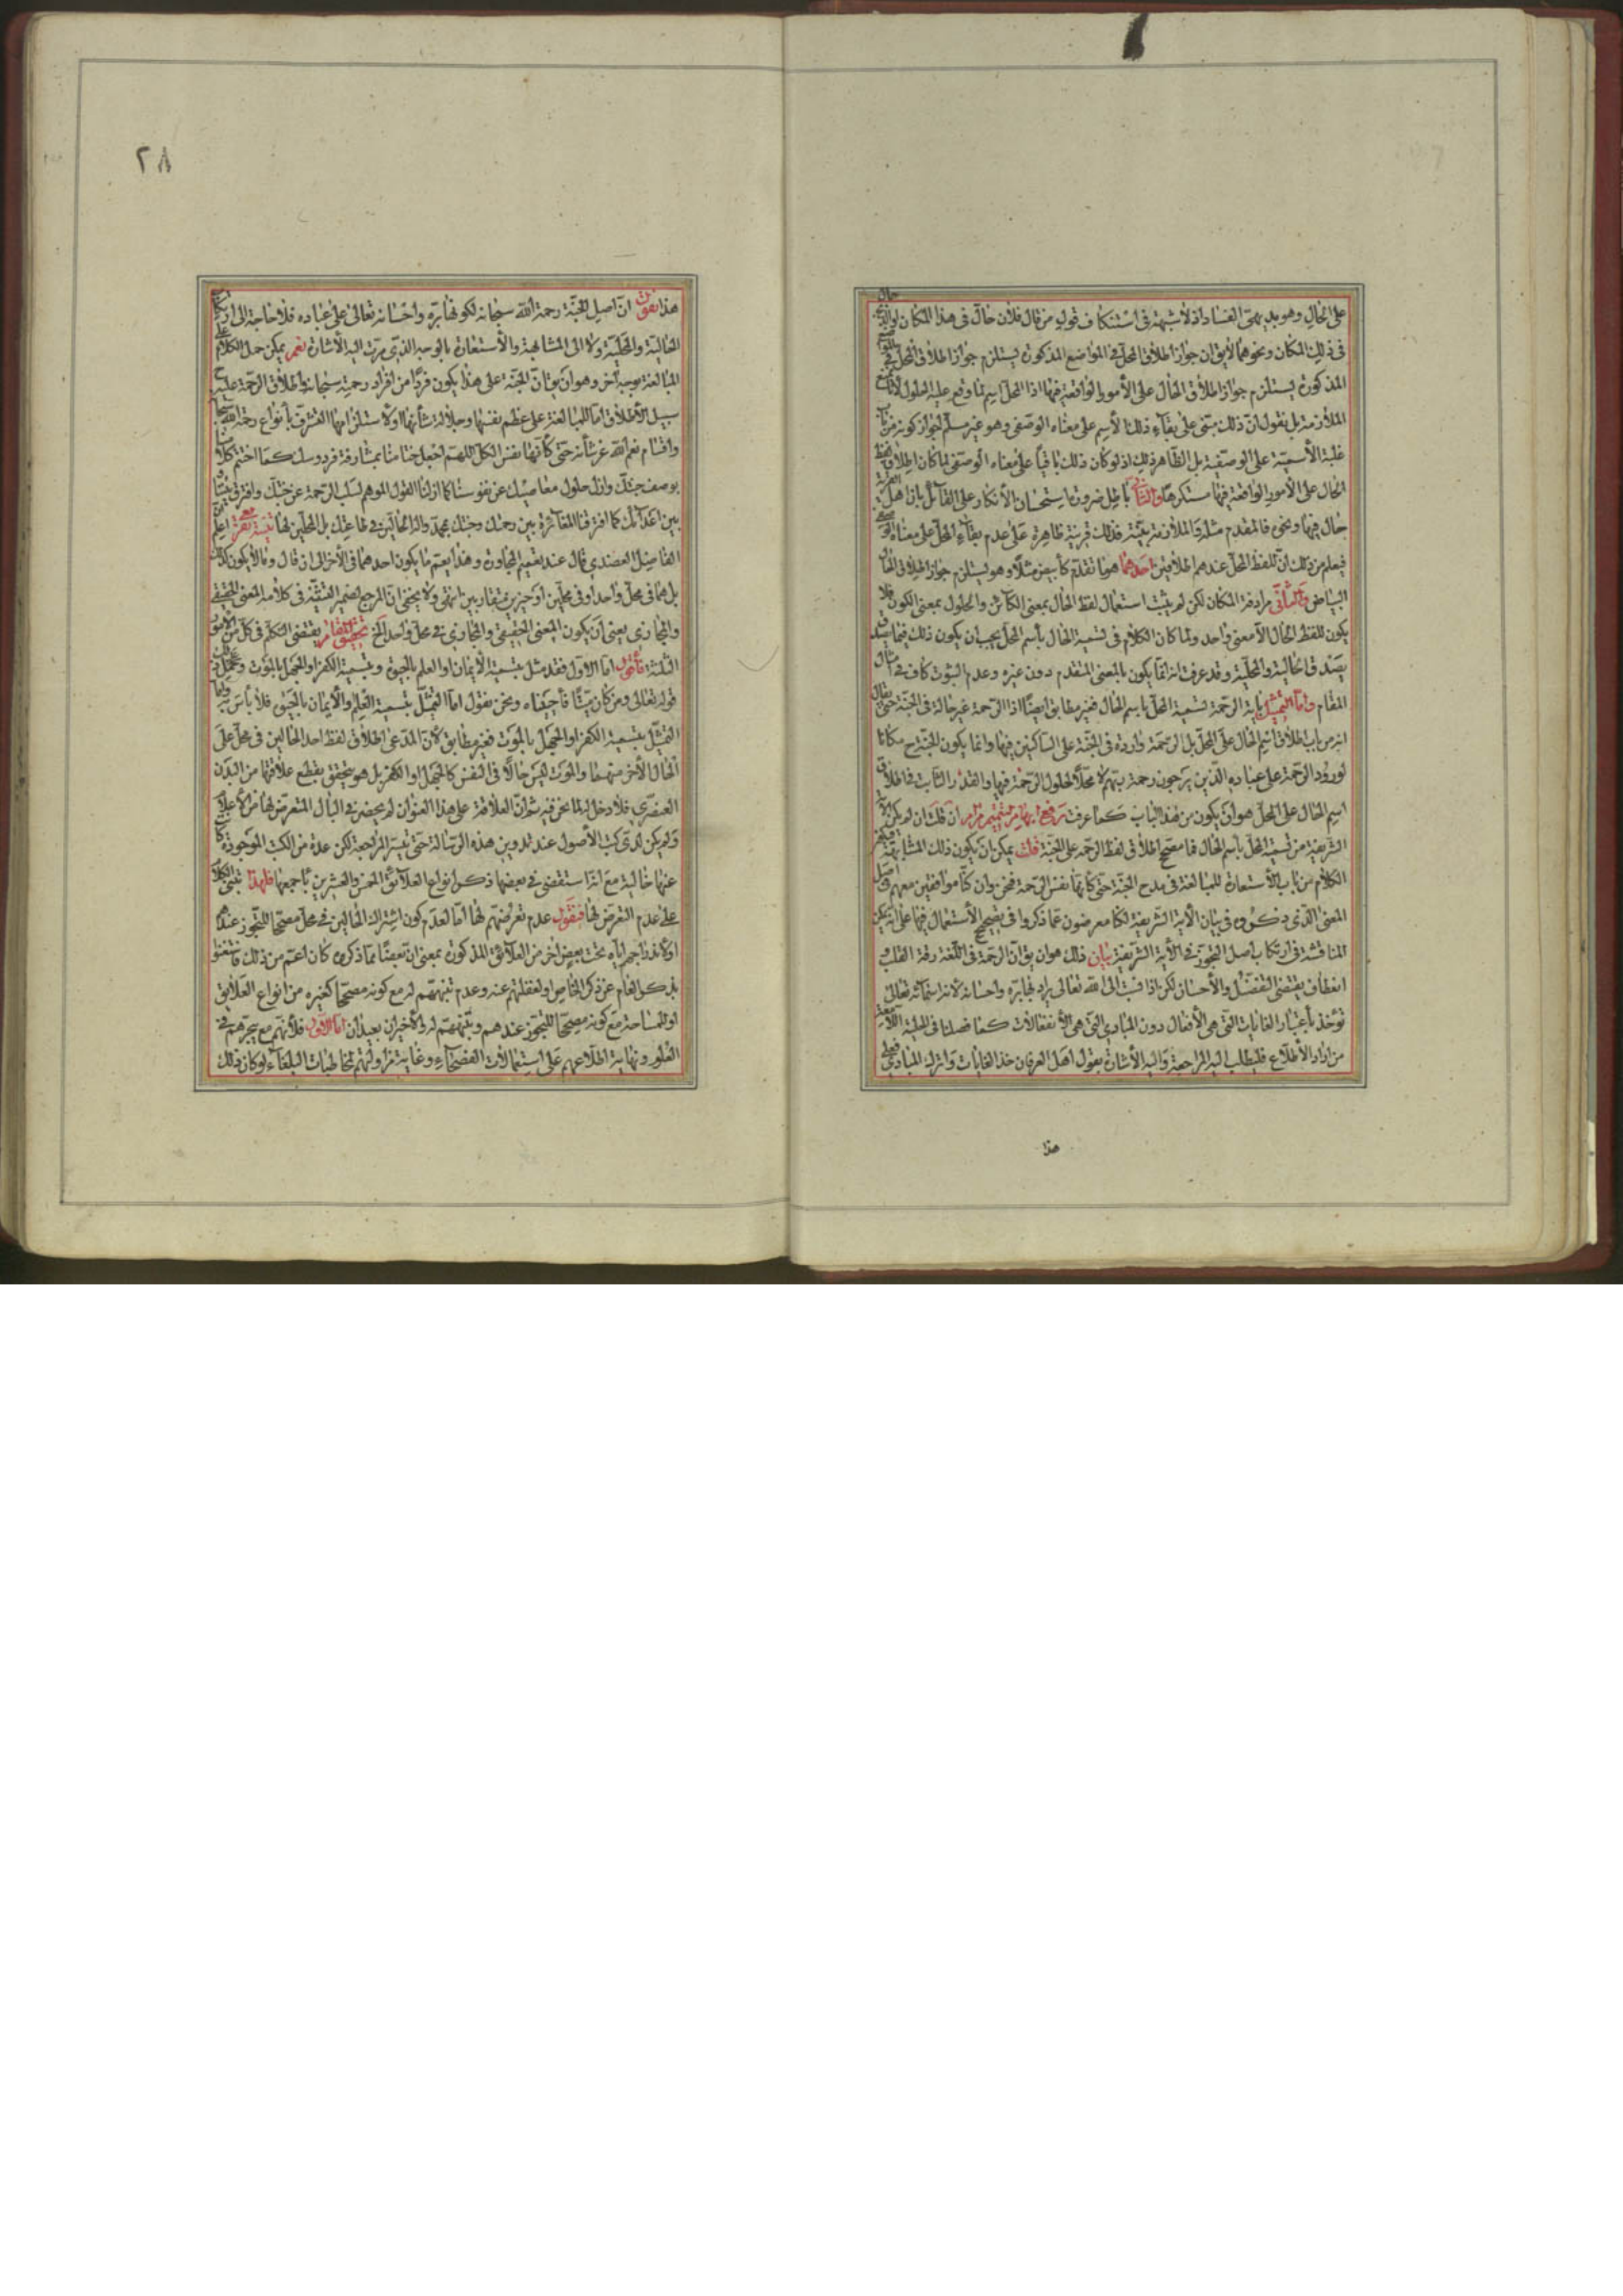 على الحال وهو بديهى الفساد اذ لا شبهة فى استنكاف قوله من قال فلان حال فى هذا المكان
فى ذلك المكان ونحوهما لا يق ان جواز اطلاق المحل فى المواضع المذكورة يستلزم جواز اطلاق المحل فى
المذكورة يستلزم جواز اطلاق الحال على الأمور الواقعة فيها اذا المحل اسم لما وقع عليه الحلول
الملازمة بل نقول ان ذلك مبتنى على بقاء ذلك الأسم على معناه الوصفى وهو غير مسلم لجواز كونه من باب
غلبة الأسمية على الوصفية بل الظاهر ذلك اذ لو كان ذلك باقيا على معناه الوصفى لما كان اطلاق لفظ
الحال على الأمور الواقعة فيها مستكرها والتالى باطل ضرورة استحسان الأنكار على القائل بان اهل القرية
حال فيها ونحوه فالمقدم مثله والملازمة بينة فذلك قرينة ظاهرة على عدم بقاء المحل على معناه الوصفى
فيعلم من ذلك ان للفظ المحل عندهم اطلاقين احدهما هو ما تقدم كأبيض مثلا وهو يستلزم جواز اطلاق الحال
البياض والثانى مرادفة المكان لكن لم يثبت استعمال لفظ الحال بمعنى الكائن والحلول بمعنى الكون فلا
يكون للفظ الحال الا معنى واحد ولما كان الكلام فى تسمية الحال بأسم المحل يجب ان يكون ذلك فيما
يصدق الحالية والمحلية وقد عرفت انه انما يكون بالمعنى المتقدم دون غيره وعدم الثبوت كاف فى امثال
المقام واما التمثيل بآية الرحمة لتسمية المحل باسم الحال فغير مطابق ايضا اذ الرحمة غير حالة فى الجنة حتى يقال
انه من باب اطلاق اسم الحال على المحل بل الرحمة واردة فى الجنة على الساكنين فيها وانما يكون الجنة ح مكانا
لورود الرحمة على عباده الذين يرجون رحمة ربهم لا محلا لحلول الرحمة فيها والقدر الثابت من اطلاق
اسم الحال على المحل هو ان يكون من هذا الباب كما عرفت ان قلت ان لم يكن الآية
الشريفة من تسمية المحل بأسم الحال فما مصحح اطلاق لفظ الرحمة على الجنة قلت يمكن ان يكون ذلك المشابهة فيكون
الكلام من باب الأستعارة للمبالغة فى مدح الجنة حتى كأنها نفس الرحمة فنحن وان كنا موافقين معهم فى اصل
المعنى الذى ذكروه فى بيان الأية الشريفة لكنا معرضون عما ذكروا فى تصحيح الأستعمال فيها على انه يمكن
المناقشة فى ارتكاب اصل التجوز فى الأية الشريفة بيان ذلك هو ان يق ان الرحمة فى اللغة رقة القلب و
انعطاف يقتضى التفضل والأحسان لكن اذا نسبت الى الله تعالى يراد بها بره واحسانه لأن اسمائه تعالى
تؤخذ بأعتبار الغايات التى هى الأفعال دون المبادى التى هى الأنفعالات كما فصلنا فى
من اراد الأطلاع فليطلب اليه المراجعة واليه الأشارة بقول اهل العرفان خذ الغايات واترك المبادى فعلى
هذا
٢٨
هذا نقول ان اصل الجنة رحمة الله سبحانه لكونها بره واحسانه تعالى على عباده فلا حاجة الى ارتكاب
الحالية والمحلية ولا الى المشابهة والأستعارة بالوجه الذى مرت اليه الأشارة نعم يمكن حمل الكلام على
المبالغة بوجه آخر وهو ان يق ان الجنة على هذا يكون فردا من افراد رحمة سبحانه واطلاق الرحمة عليه ح
سبيل الأطلاق اما للمبالغة على عظم نفسها وجلالة شأنها او لاستلزامها التشرف بأنواع رحمة الله سبحانه
واقسام نعم الله عز شأنه حتى كأنها نفس الكل اللهم اجعل ختامنا بمشارفة فردوسك كما اختم كلامنا
بوصف جنتك وازل حلول معاصيك عن نفوسنا كما ازلنا القول الموهم لسلب الرحمة عن جنتك وافترق بيننا
بين اعدائك كما افترقنا المغايرة بين رحمتك وجنتك بمحمد وآله الحالين فى طاعتك بل المحلين لها
الفاضل العضدى قال عند تعميم المجاورة وهذا يعم ما يكون احدهما فى الأخر الى ان قال وما لا يكون كذلك
بل هما فى محل واحد او فى محلين او حيزين متقاربين انتهى ولا يخفى ان المرجع لضمير التثنية فى كلامه المعنى الحقيقى
والمجازى يعنى ان يكون المعنى الحقيقى والمجازى فى محل واحد الخ تحقيق المقام يقتضى التكلم فى كل من الأمور
الثلثة فأقول اما الأول فقد مثل بتسمية الأيمان او العلم بالحيوة وبتسمية الكفر او الجهل بالموت
قوله تعالى ومن كان ميتا فأحييناه ونحن نقول اما التمثيل بتسمية العلم والأيمان بالحيوة فلا بأس به واما
التمثيل بتسمية الكفر او الجهل بالموت فغير مطابق لأن المدعى اطلاق لفظ احد الحالين فى محل على
الحال الأخر منهما والموت ليس حالا فى النفس كالجهل او الكفر بل هو يتحقق بقطع علاقتها من البدن
العنصرى فلا دخل له بما نحن فيه ثم ان العلاقة على هذا العنوان لم يحضر فى البال المتعرض لها من الأعلام
ولم يكن لدى كتب الأصول عند تدوين هذه الرسالة حتى تيسر المراجعة لكن عدة من الكتب الموجودة كانت
عنها خالية مع انه استقصى فى بعضها ذكر انواع العلائق الخمس والعشرين بأجمعها فلهذا نبنى الكلام
على عدم التعرض لها فنقول عدم تعرضهم لها اما لعدم كون اشتراك الحالين فى محل مصححا للتجوز عندهم
او لاندراجه اياه تحت بعض اخر من العلائق المذكورة بمعنى ان بعضا مما ذكروه كان اعم من ذلك فاستغنوا
بذكر العام عن ذكر الخاص او لغفلتهم عنه وعدم تنبههم له مع كونه مصححا كغيره من انواع العلائق
او للمسامحة مع كونه مصححا للتجوز عندهم وتنبههم له والأخيران بعيدان اما الأول فلأنهم مع تبحرهم فى
العلوم ونهاية اطلاعهم على استعمالات الفصحاء وغاية مزاولتهم لمخاطبات البلغاء لو كان ذلك